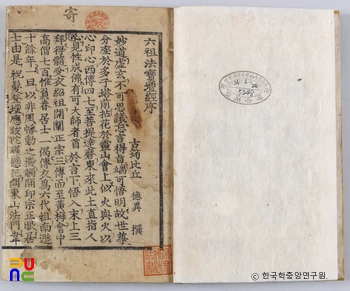 寄
六祖法寶壇經序
古筠比丘 德異 撰
妙道虛玄不可思議忘言得旨端可悟明故世尊
分座於多子塔前拈花於靈山會上似火與火以
心印心西傳四七至菩提達磨東來此土直指人
心見性成佛有可大師者首於言下悟入末上三
拜得髓受衣紹祖開闡正宗三傳而至黃梅會中
高僧七百惟負舂居士一偈傳衣爲六代祖南遯
十餘年一旦以非風幡動之機觸開印宗正眼居
士由是祝髮登壇應跋陀羅懸記開東山法門韋
ⓒ 한국학중앙연구원